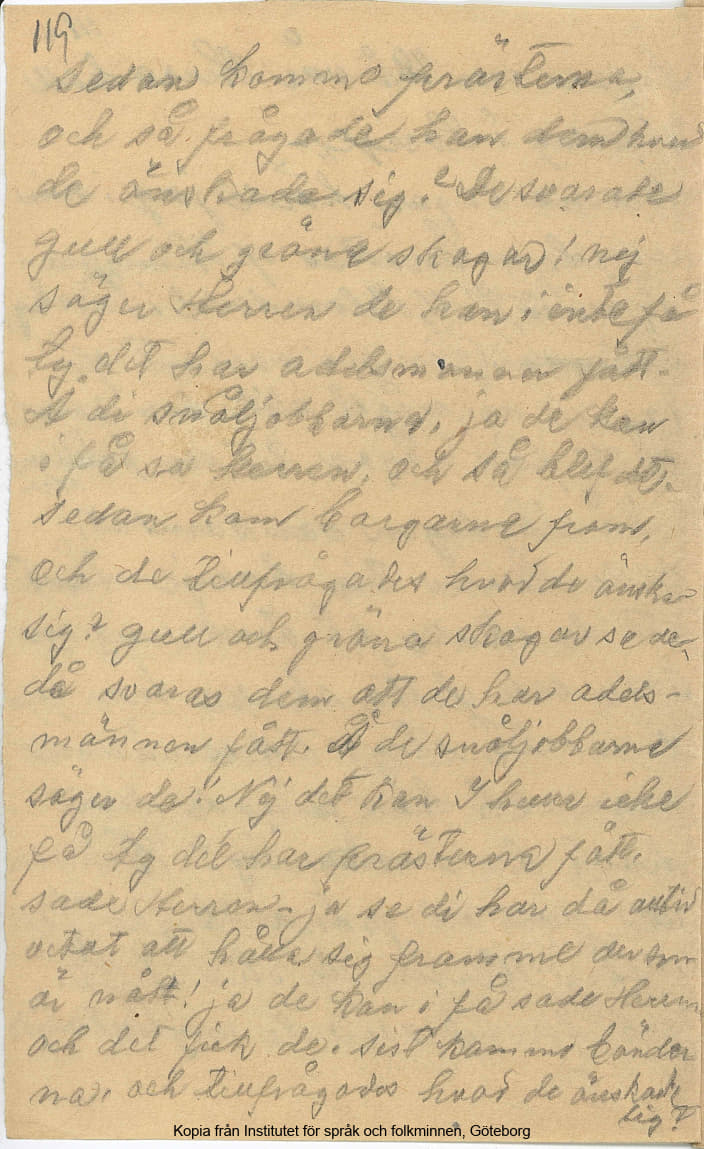 119
sedan kommo prästerna,
och så frågade han dem hvad
de önskade sig? De svarade
gull och gröna skogar! nej
säger Herren de kan i inte få
ty det har adelsmannen fått.
Å di snåljobbarna, ja de kan
i få sa Herren. och så blef det.
sedan kom borgarne fram,
och de tillfrågades hvad de önska
sig? gull och gröna skogar sa de,
då svaras dem att de har adels-
männen fått. Å de snåljobbarne
säger de! Nej det kan I heller icke
få ty det har prästerna fått.
sade Herren – ja se di har då alltid
vetat att hålla sig framme der som
är nått! ja de kan i få sade Herren
och det fick de. sist kommo bönder
na, och tillfrågades hvad de önskade
sig?
Kopia från Institutet för språk och folkminnen, Göteborg